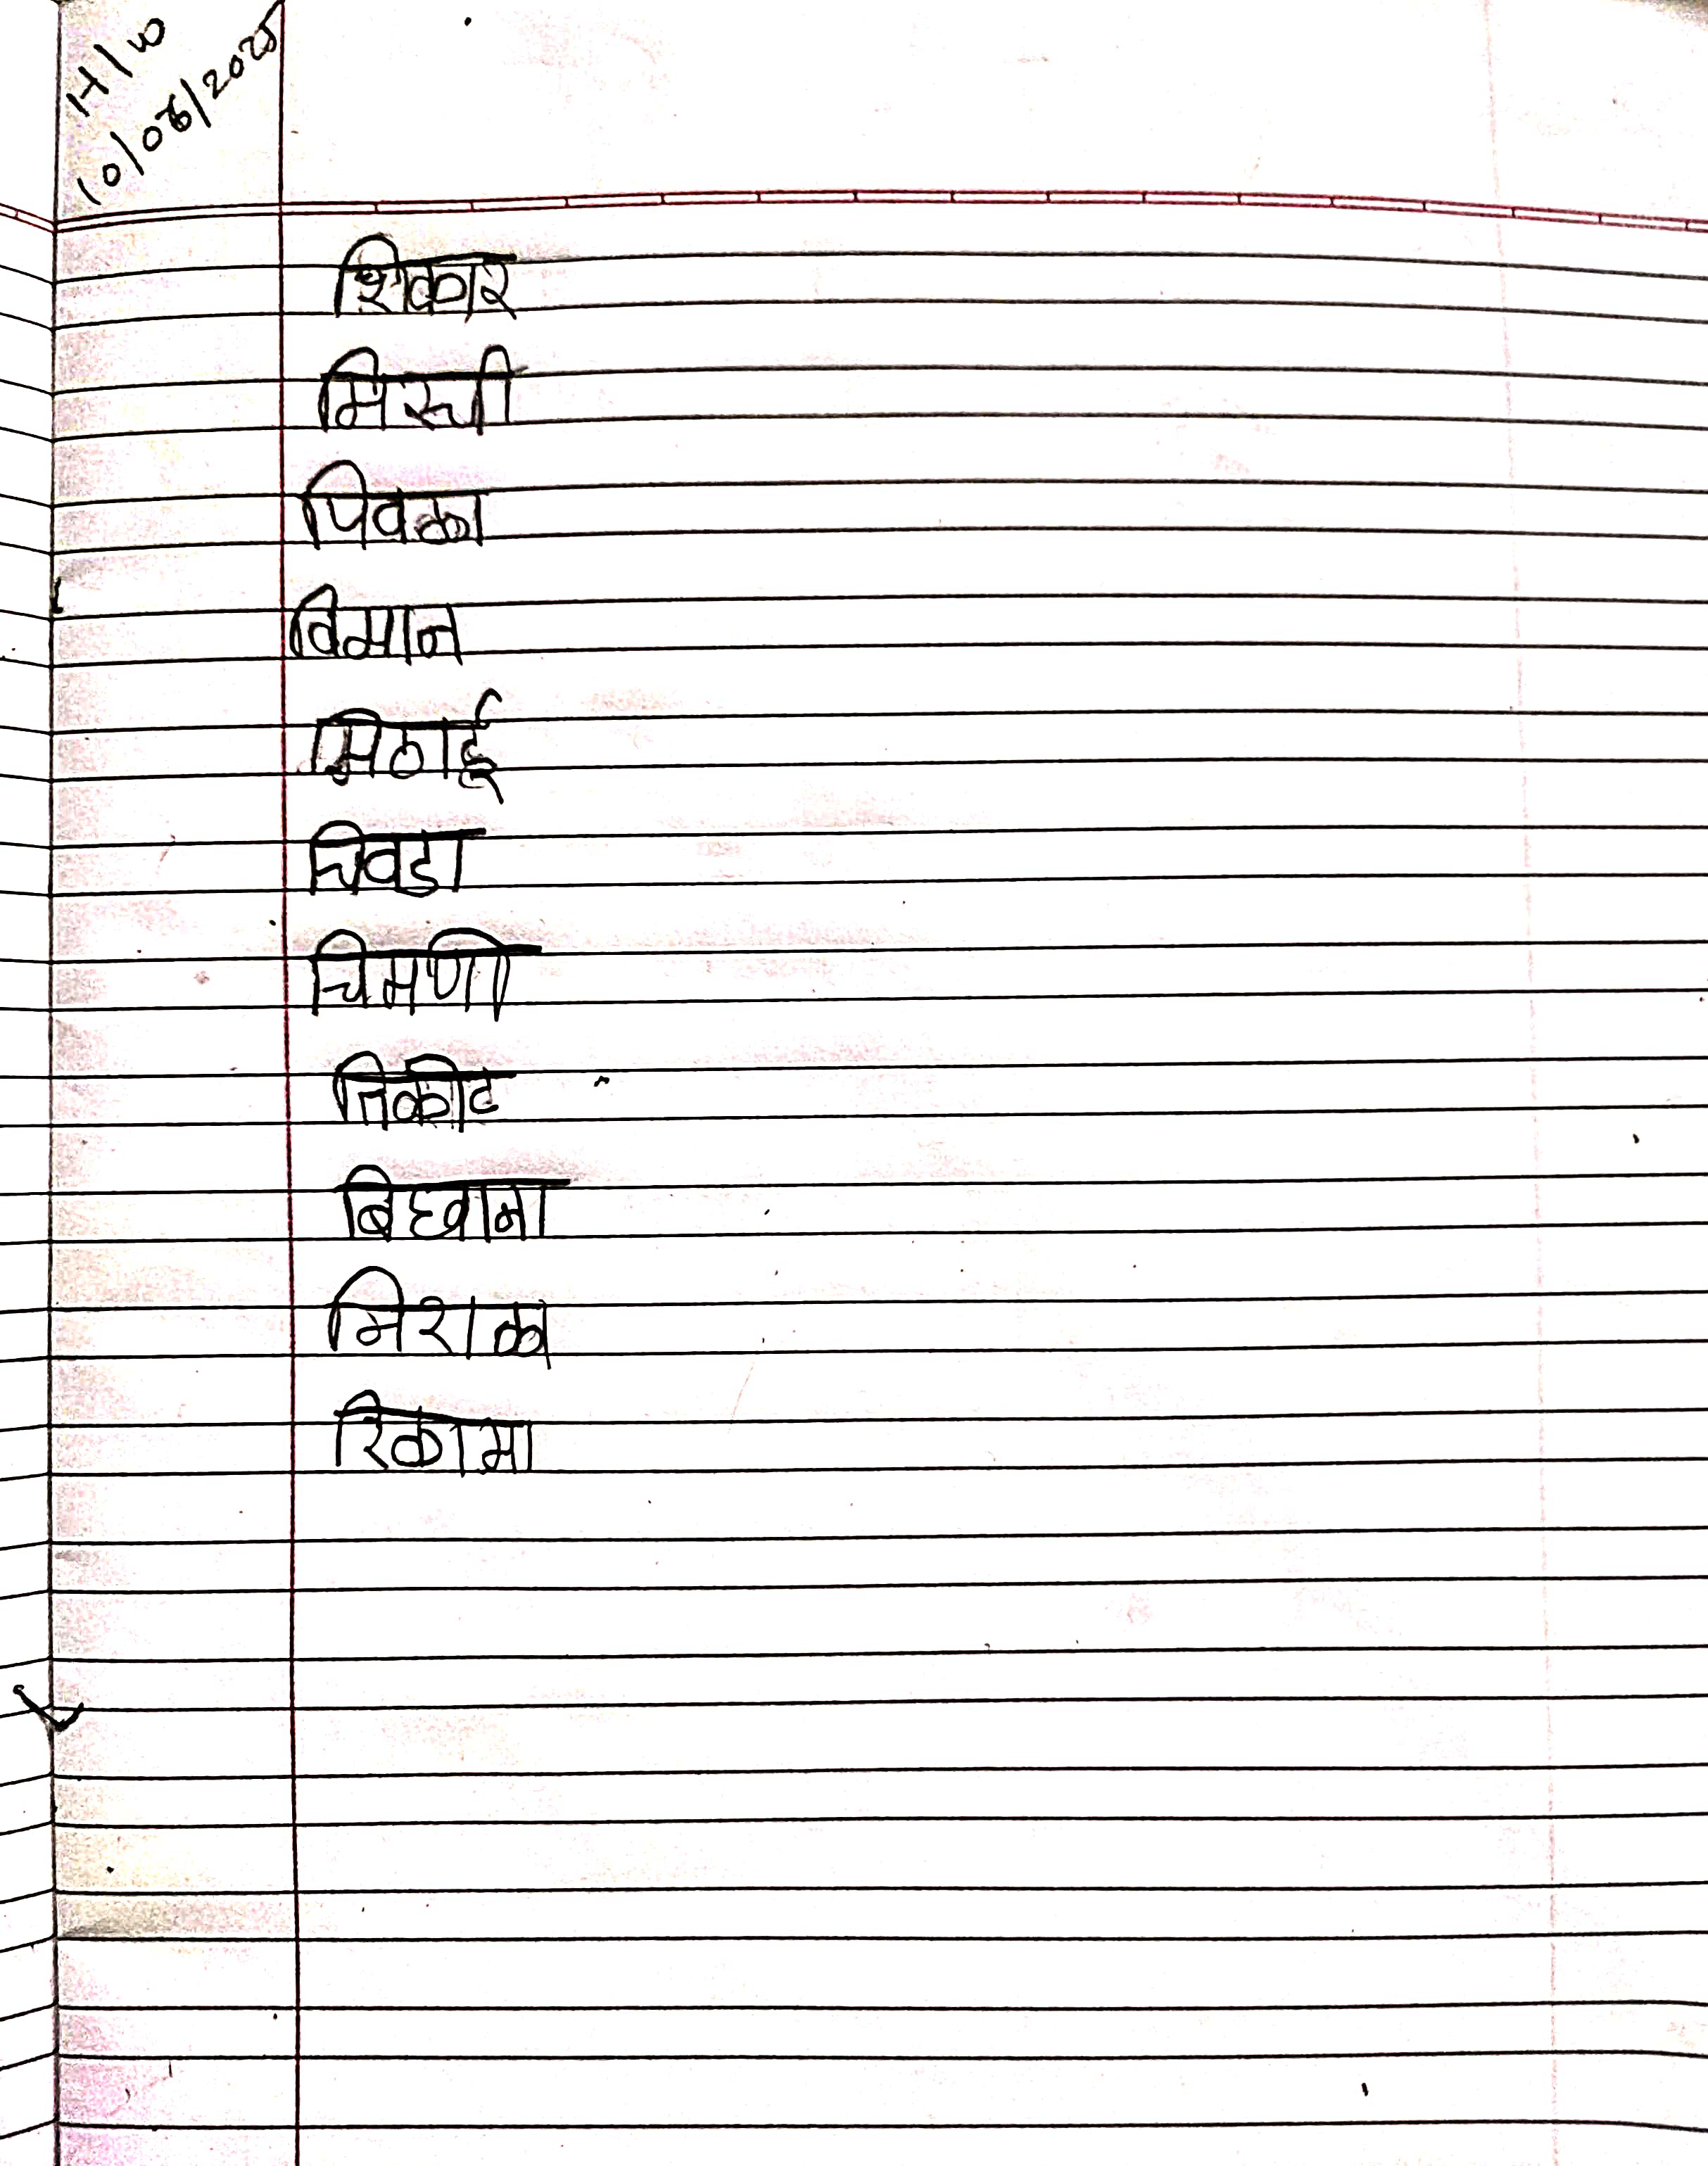 H/W
10/06/2025
शिकार
मिरची
पिवळा
विमान
मिठाई
चिवडा
चिमणी
तिकीट
बिछवाना
मिराळा
रिकामा